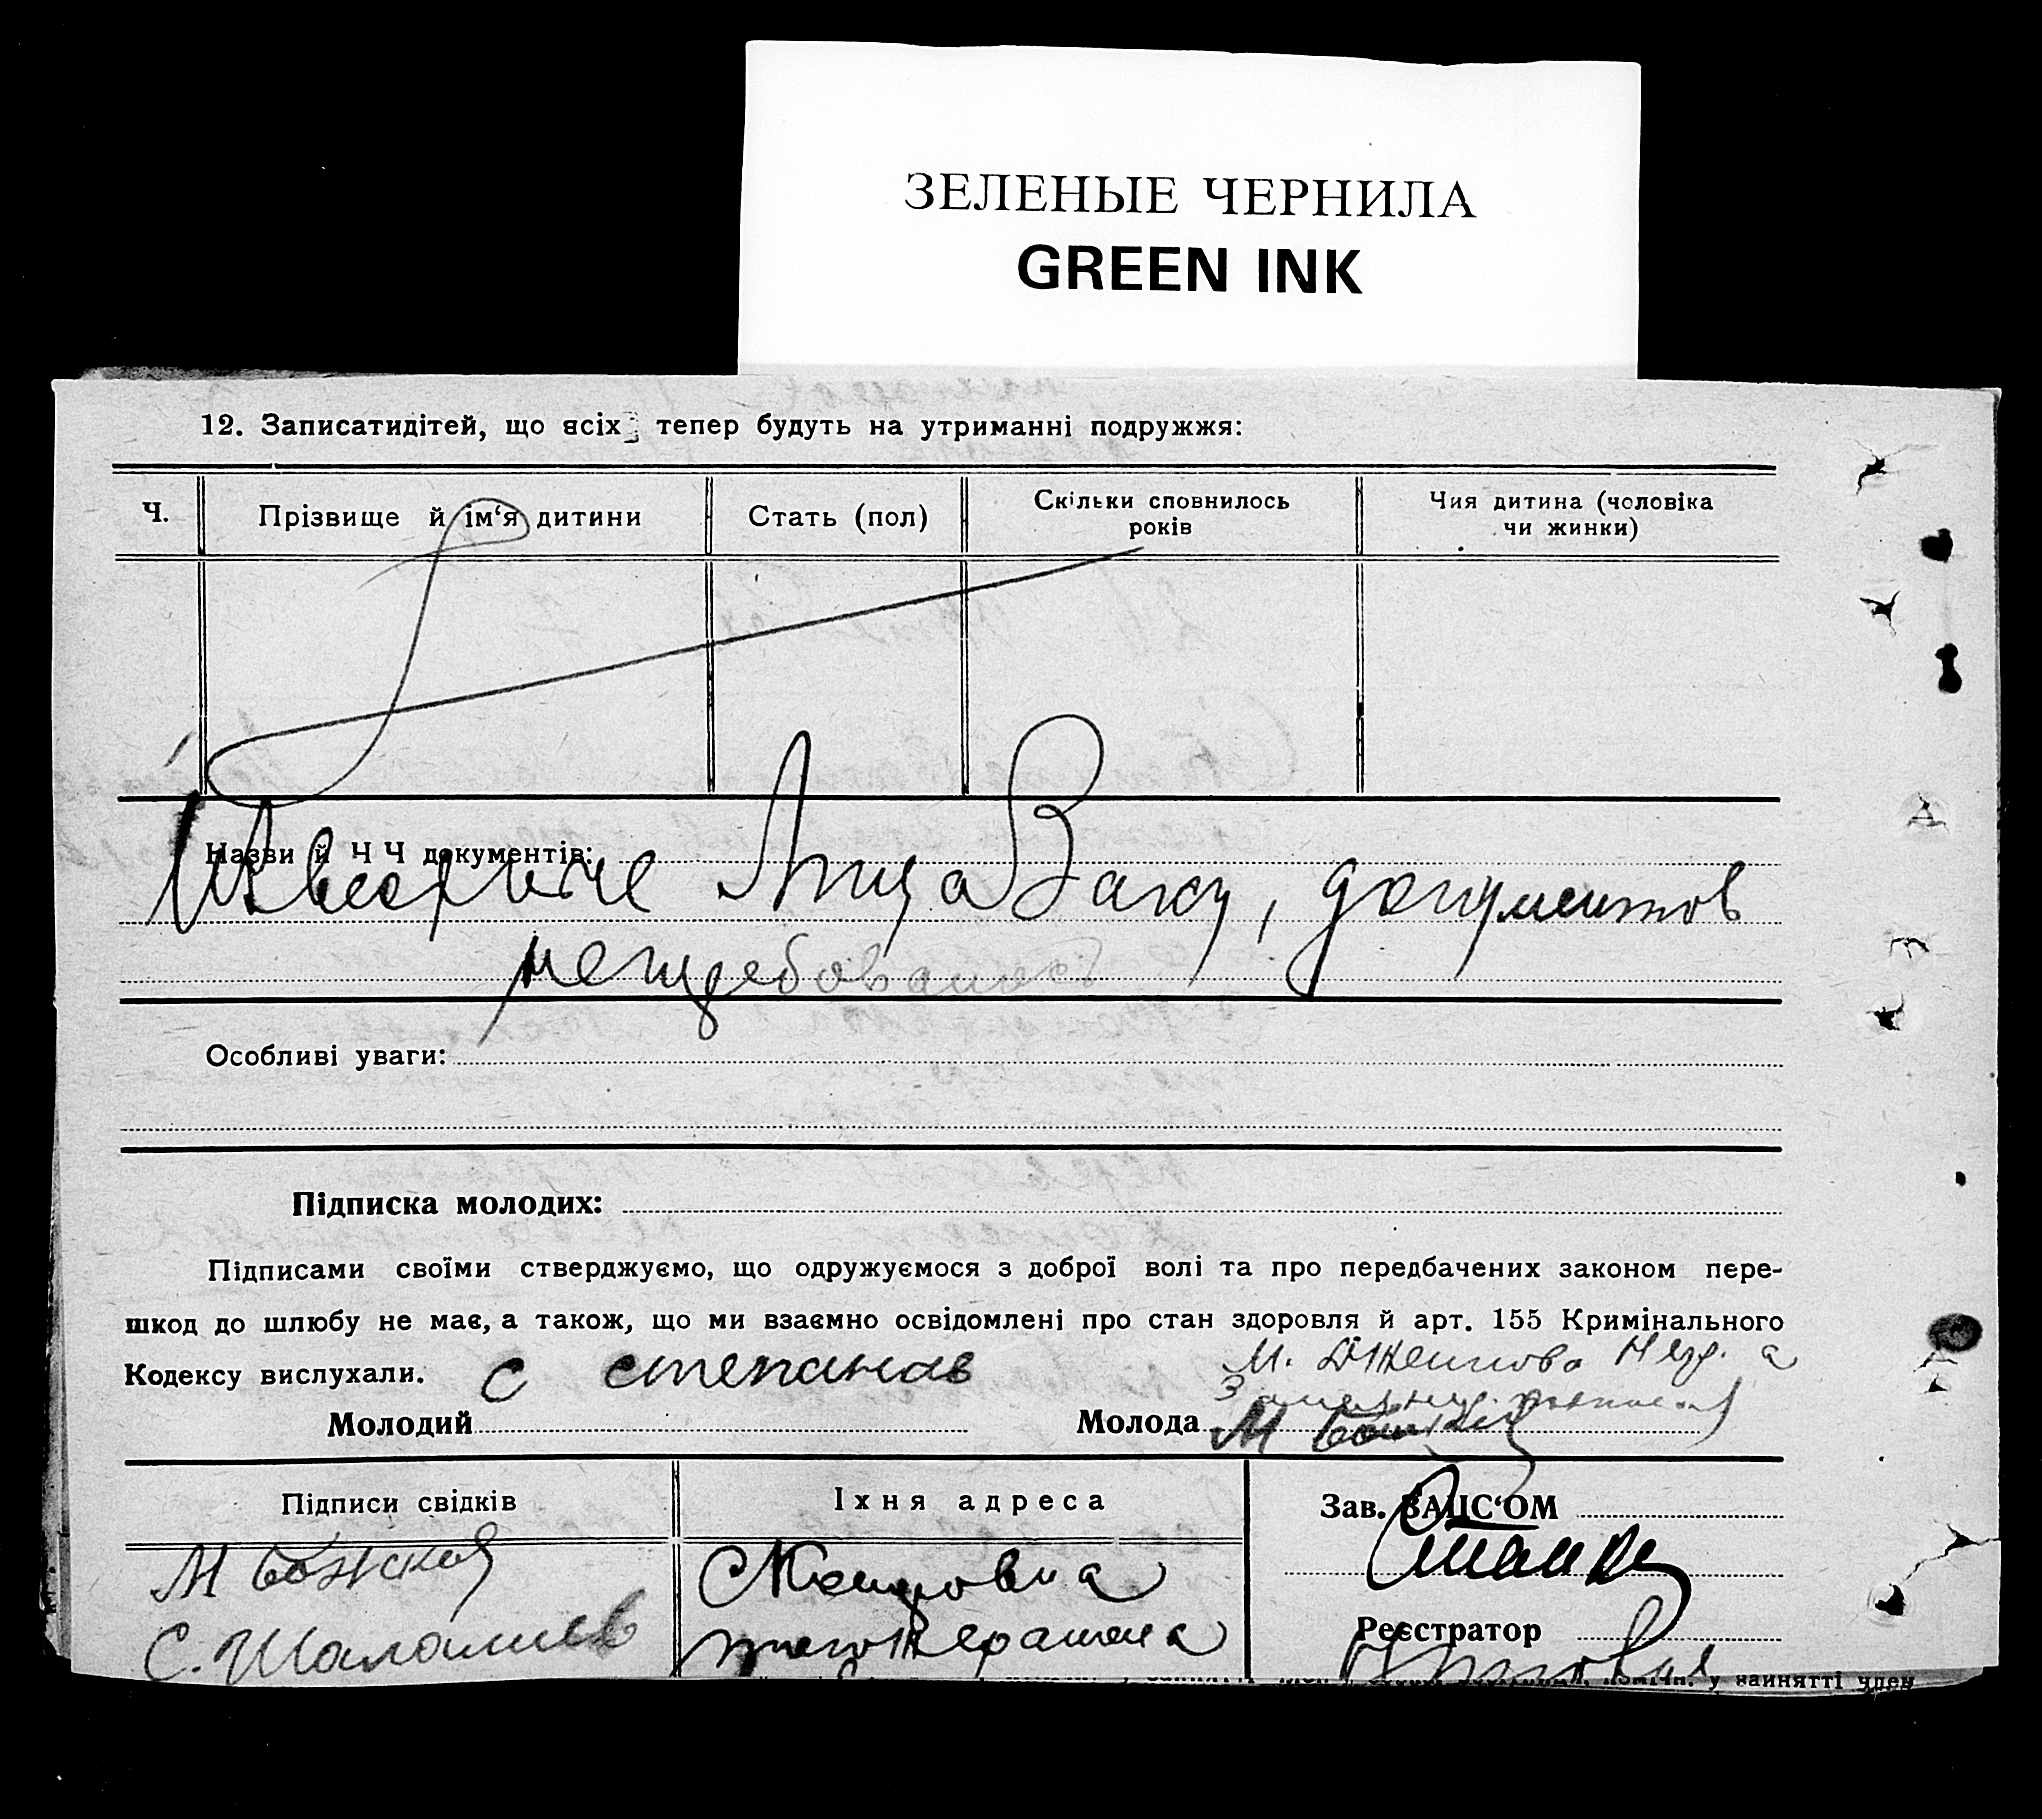 ЗЕЛЕНЫЕ ЧЕРНИЛА
GREEN INK
12. Записатидітей, що всіх тепер будуть на утриманні подружжя:
Ч.
Прізвище й ім‘я дитини
Стать (пол)
Скільки сповнилось
років
Чия дитина (чоловіка
чи жинки)
Назви й ЧЧ документів:
Лица Загсу, документов
нетребовалось
Особливі уваги:
Підписка молодих:
Підписами своїми стверджуємо, що одружуємося з доброї волі та про передбачених законом пере-
шкод до шлюбу не має, а також, що ми взаємно освідомлені про стан здоровля й арт. 155 Кримінального
Кодексу вислухали.
С степанов
Молодий
Молода
Підписи свідків
Їхня адреса
Зав. ЗАГС‘ОМ
С. Шаламиев
Реєстратор
у наинятті член